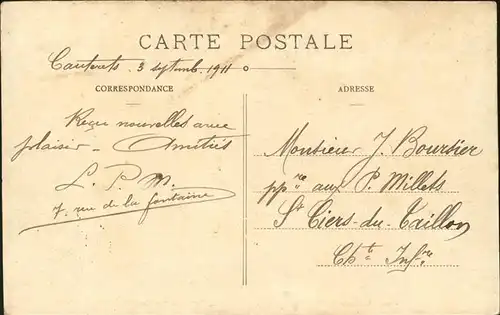 CARTE POSTALE
Cauterets 3 septemb. 1911
CORRESPONDANCE
Reçu nouvelles avec
plaisir - Amitiés
L. P. M.
7, rue de la fontaine
ADRESSE
Monsieur J. Boursier
pp.re aux P. Millets
St Ciers-du-Taillon
Ch.te Inf.re